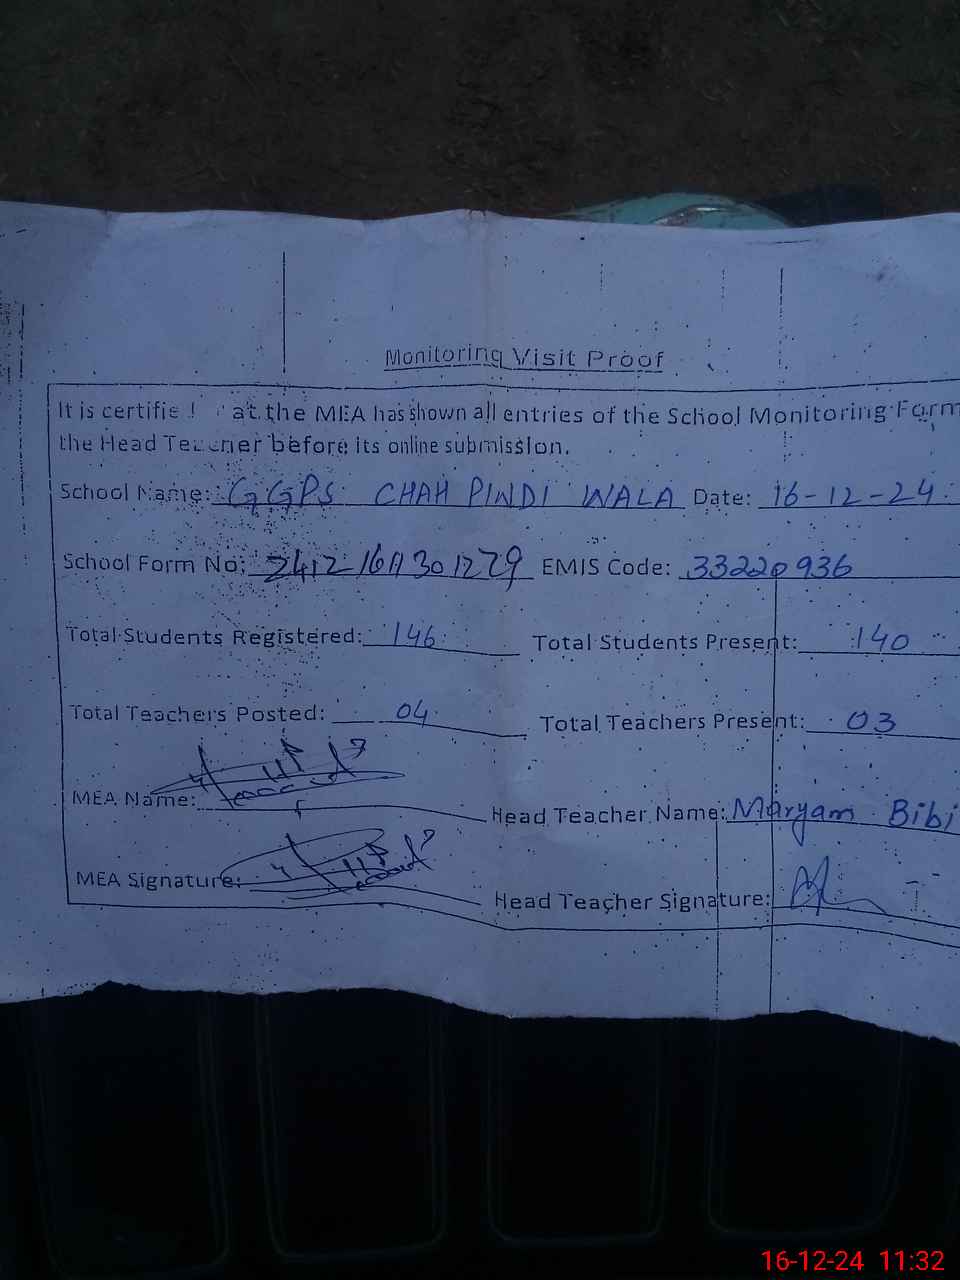 Monitoring Visit Proof
It is certifie at the MEA has shown all entries of the School Monitoring Form
the Head Teacher before its online submission.
School Name: GGPS CHAH PINDI WALA Date: 16-12-24
School Form No: EMIS Code: 33220936
Total Students Registered: 146 Total Students Present: 140
Total Teachers Posted: 04 Total Teachers Present: 03
MEA Name: Head Teacher Name: Maryam Bibi
MEA Signature: Head Teacher Signature:
16-12-24 11:32